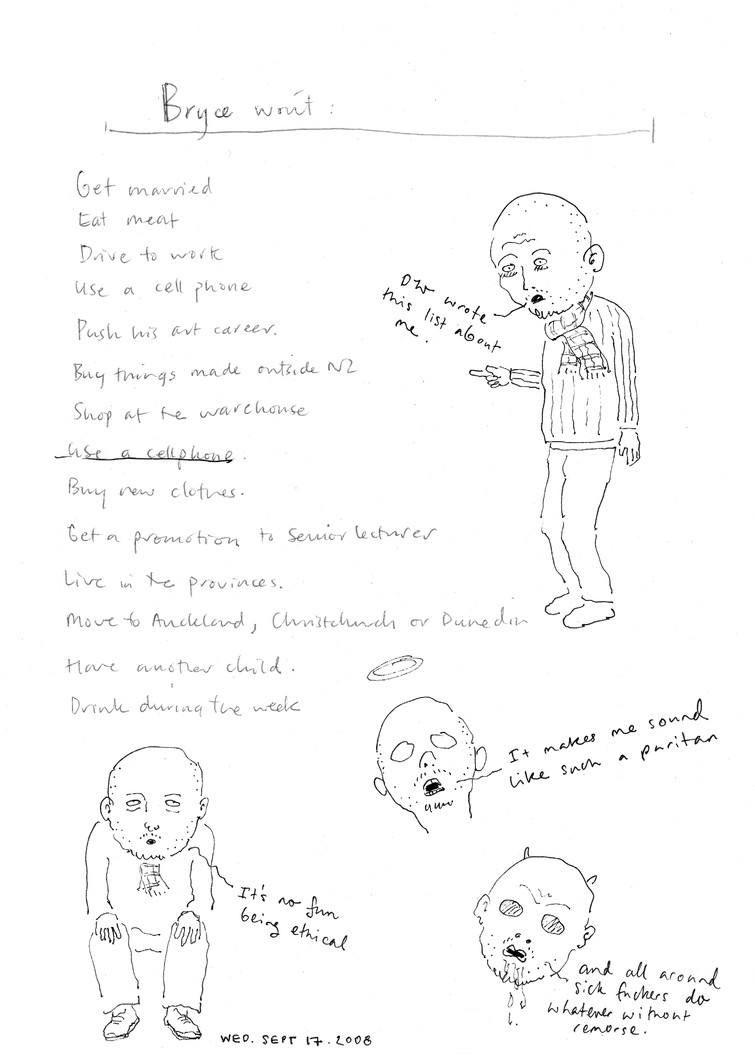 Bryce won't :
Get married
Eat meat
Drive to work
Use a cell phone
Push his art career.
Buy things made outside NZ
Shop at the warehouse
Use a cellphone.
Buy new clothes.
Get a promotion to Senior lecturer
Live in the provinces.
Move to Auckland, Christchurch or Dunedin
Have another child.
Drink during the week
wrote
this list about
me.
It makes me sound
like such a puritan
It's no fun
being ethical
and all around
sick fuckers do
whatever without
remorse.
WED. SEPT 17. 2008